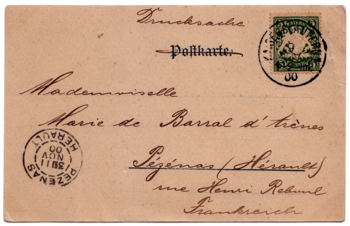 Drucksache
Postkarte.
Mademoiselle
Marie de Barral d'Arènes
Pézénas (Hérault)
rue Henri Reboul
Frankreich
PEZENAS
NOV
00
HERAULT
00